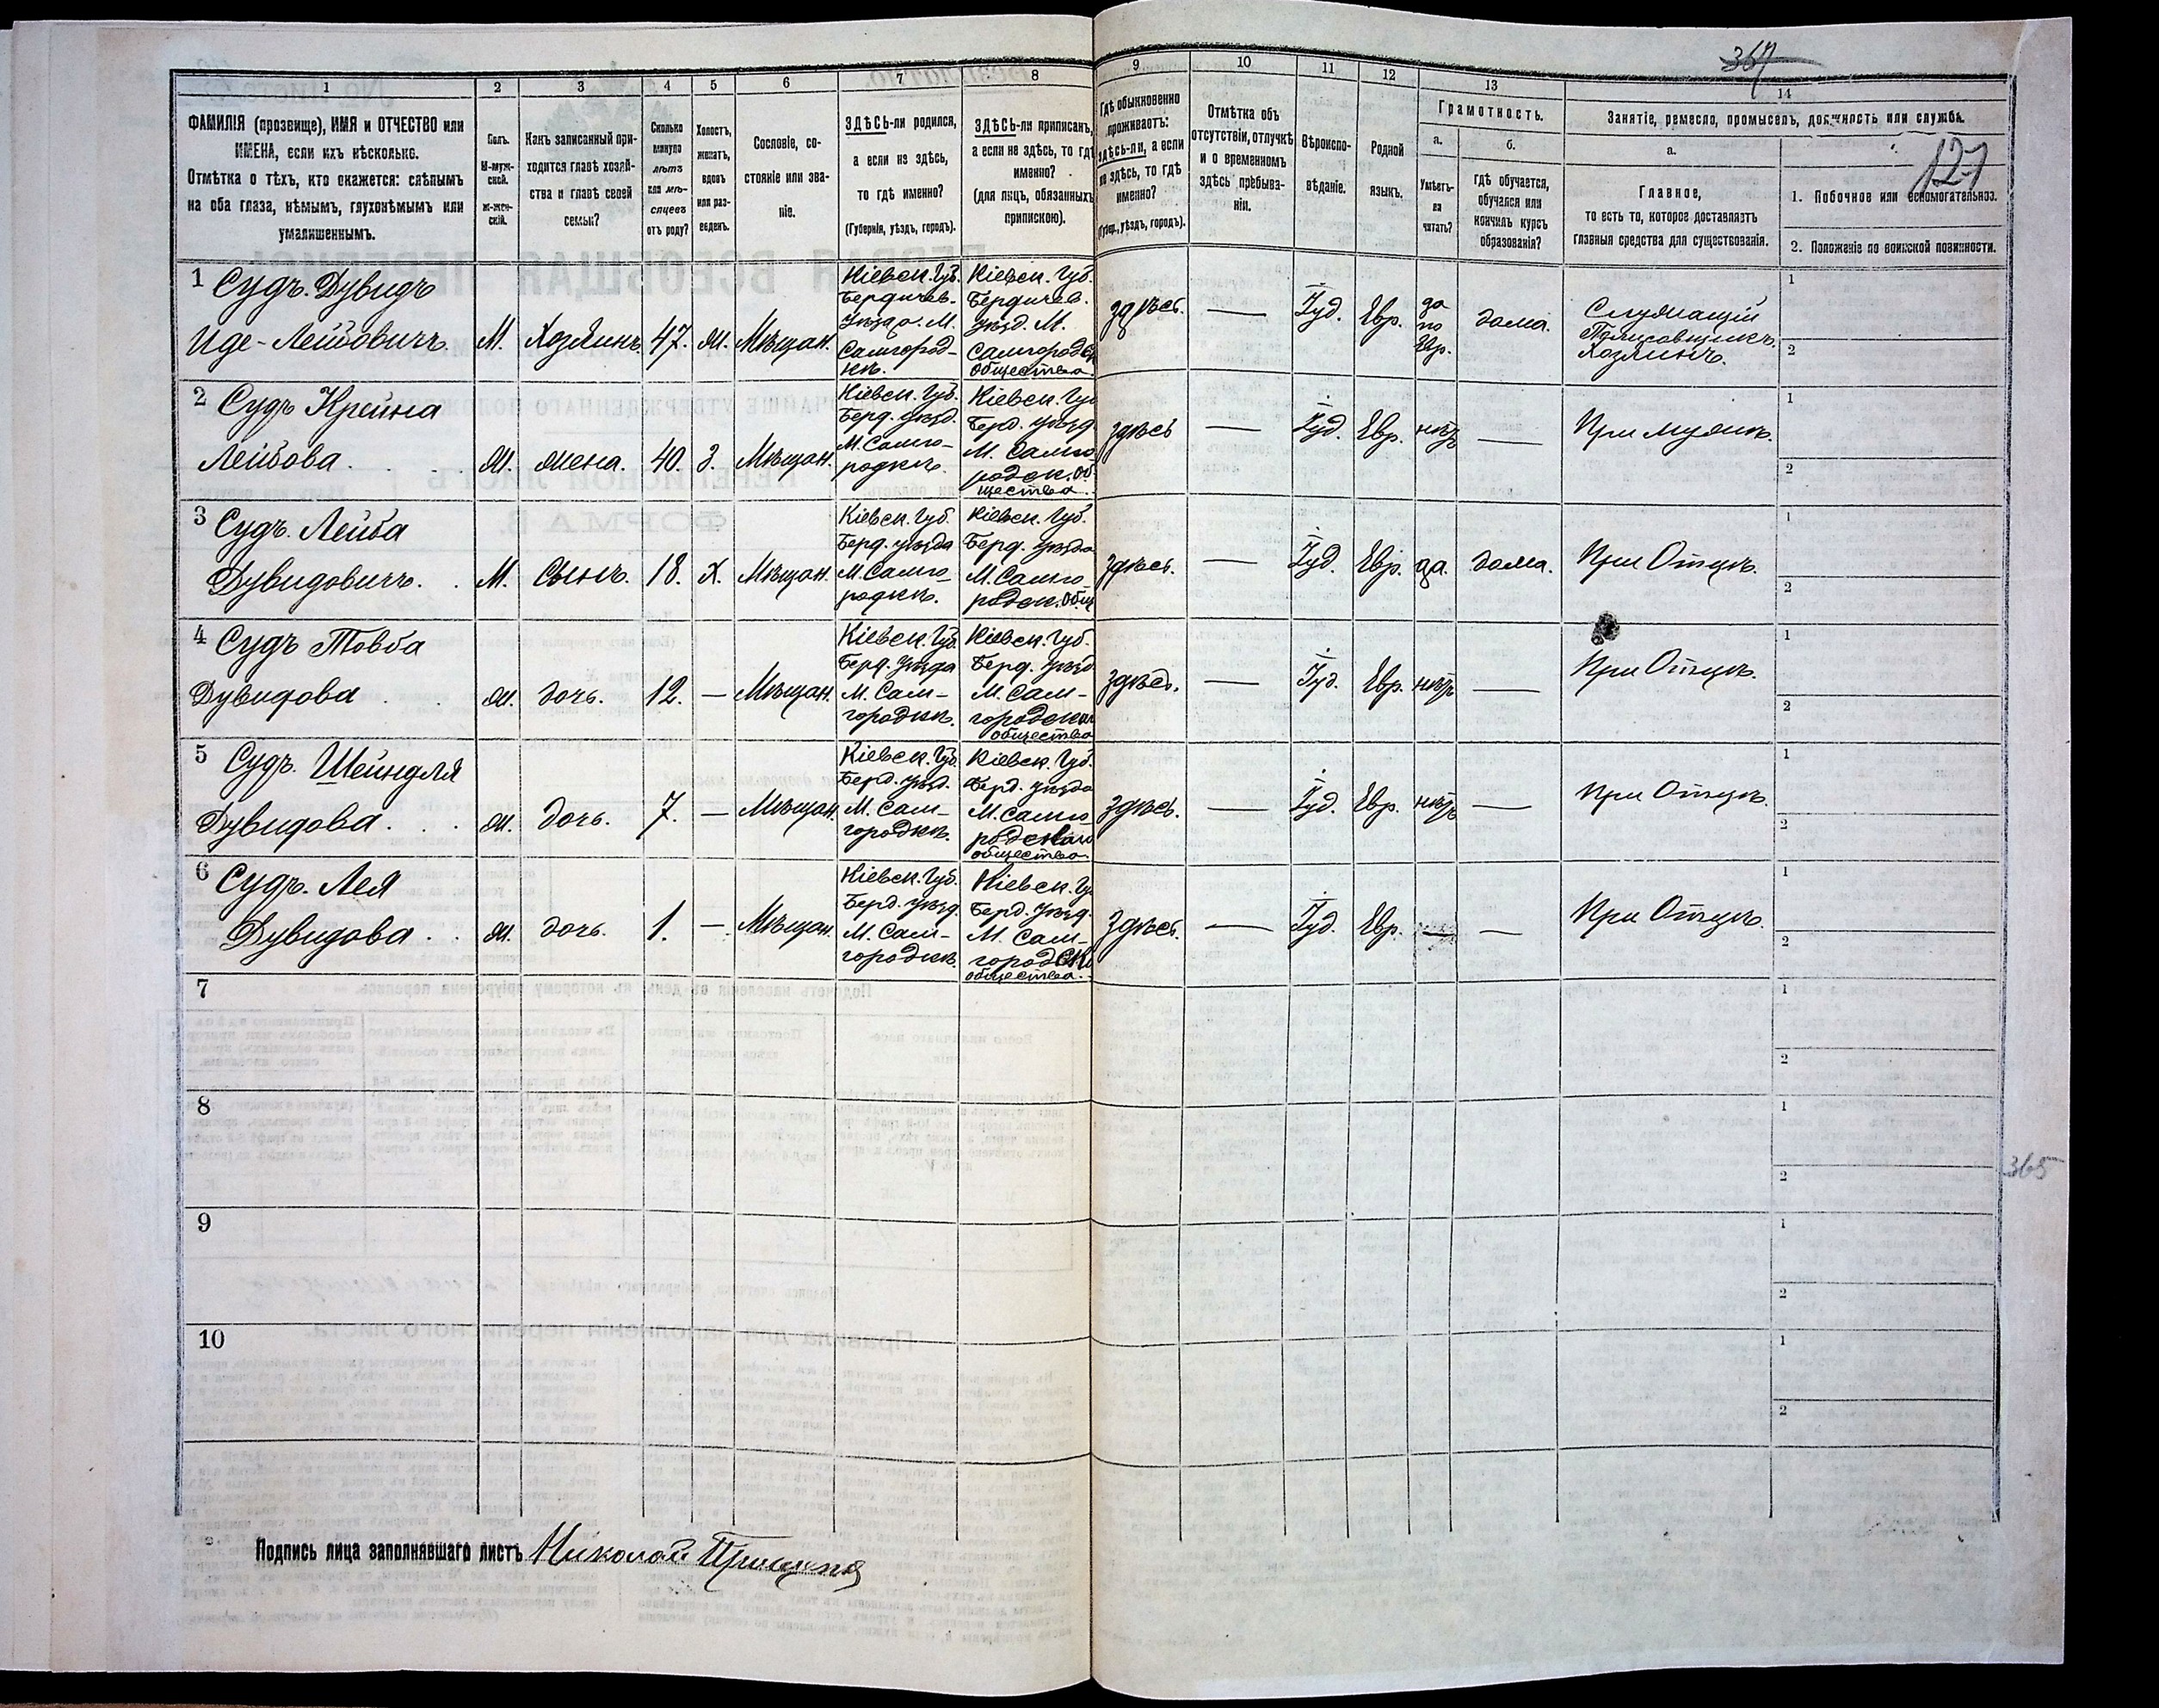 367
121
1 2 3 4 5 6 7 8 9 10 11 12 13 14
ФАМИЛІЯ (прозвище), ИМЯ и ОТЧЕСТВО или
ИМЕНА, если ихъ нѣсколько.
Отмѣтка о тѣхъ, кто окажется: слѣпымъ
на оба глаза, нѣмымъ, глухонѣмымъ или
умалишеннымъ.
Полъ.
М-муж-
ской.
Ж-жен-
скій.
Какъ записанный при-
ходится главѣ хозяй-
ства и главѣ своей
семьи?
Сколько
минуло
лѣтъ
или мѣ-
сяцевъ
отъ роду?
Холостъ,
женатъ,
вдовъ
или раз-
веденъ.
Сословіе, со-
стояніе или зва-
ніе.
ЗДѢСЬ-ли родился,
а если не здѣсь,
то гдѣ именно?
(Губернія, уѣздъ, городъ).
ЗДѢСЬ-ли приписанъ,
а если не здѣсь, то гдѣ
именно?
(для лицъ, обязанныхъ
припискою).
Гдѣ обыкновенно
проживаетъ:
здѣсь-ли, а если
не здѣсь, то гдѣ
именно?
(Губер., уѣздъ, городъ).
Отмѣтка объ
отсутствіи, отлучкѣ
и о временномъ
здѣсь пребыва-
ніи.
Вѣроиспо-
вѣданіе.
Родной
языкъ.
Грамотность.
а.
Умѣетъ-
ли
читать?
б.
Гдѣ обучается,
обучался или
кончилъ курсъ
образованія?
Занятіе, ремесло, промыселъ, должность или служба.
а.
Главное,
то есть то, которое доставляетъ
главныя средства для существованія.
1. Побочное или вспомогательное.
2. Положеніе по воинской повинности.
1 Судъ. Дувидъ
Иде-Лейбовичъ. М. Хозяинъ. 47. Ж. Мѣщан.
Кіевск. Губ.
Бердичев-
Уѣзда. М.
Самгород-
кѣ.
Кіевск. Губ.
Бердичев.
уѣзд. М.
Самгородск
Общества.
здѣсь. — Іуд. Евр.
да
по
Евр.
дома.
Служащій
Хозяинъ.
1
2
2 Судъ Крейна
Лейбова. Ж. жена. 40. З. Мѣщан.
Кіевск. Губ.
Берд. уѣзд.
М. Самго-
родкѣ.
Кіевск. Губ
Берд. уѣзд
М. Самго-
родск. Об-
щества.
здѣсь — Іуд. Евр. нѣтъ — При мужѣ.
1
2
3 Судъ. Лейба
Дувидовичъ. М. Сынъ. 18. Х. Мѣщан.
Кіевск. Губ.
Берд. уѣзда
М. Самго-
родкѣ.
Кіевск. Губ.
Берд. уѣзда
М. Самго-
родск. Общ
здѣсь. — Іуд. Евр. да. дома. При Отцѣ.
1
2
4 Судъ Товба
Дувидова Ж. дочь. 12. — Мѣщан.
Кіевск. Губ.
Берд. уѣзда
М. Сам-
городкѣ.
Кіевск. Губ.
Берд. уѣзд
М. Сам-
городским
общества
здѣсь. — Іуд. Евр. нѣтъ — При Отцѣ.
1
2
5 Судъ. Шейндля
Дувидова. Ж. дочь. 7. — Мѣщан.
Кіевск. Губ.
Берд. уѣзд.
М. Сам-
городкѣ.
Кіевск. Губ.
Берд. уѣзда
М. Самго-
родскаго
общества.
здѣсь. — Іуд. Евр. нѣтъ — При Отцѣ.
1
2
6 Судъ. Лея
Дувидова. Ж. дочь. 1. — Мѣщан.
Кіевск. Губ.
Берд. уѣзд.
М. Сам-
городкѣ.
Кіевск. Гу
Берд. Уѣзд.
М. Сам-
городско
общества.
здѣсь. — Іуд. Евр. — — При Отцѣ.
1
2
7
1
2
8
1
2
365
9
1
2
10
1
2
Подпись лица заполнявшаго листъ Николай